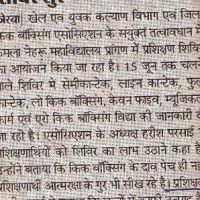 बेरखा। खेल एवं युवक कल्याण विभाग एवं जिल
किक बॉक्सिंग एसोसिएशन के संयुक्त तत्वावधान में
कमला नेहरू महाविद्यालय प्रांगण में प्रशिक्षण शिविर
का आयोजन किया जा रहा है। 15 जून तक चलने
वाले शिविर में सेमीकान्टेक, लाइन कान्टेक, फुल
कान्टेक, लो किक बॉक्सिंग, केवन फाइव, म्यूजिकल
फार्म एवं एरो किक बॉक्सिंग विद्या की जानकारी दी
जा रही है। एसोसिएशन के अध्यक्ष हरीश परसाई
प्रशिक्षणार्थियों को शिविर का लाभ उठाने कहा है
उन्होंने बताया कि किक बॉक्सिंग के दाव पेच ही नहीं
प्रशिक्षणार्थी आत्मरक्षा के गुर भी सीख रहे हैं। प्रशिक्षक